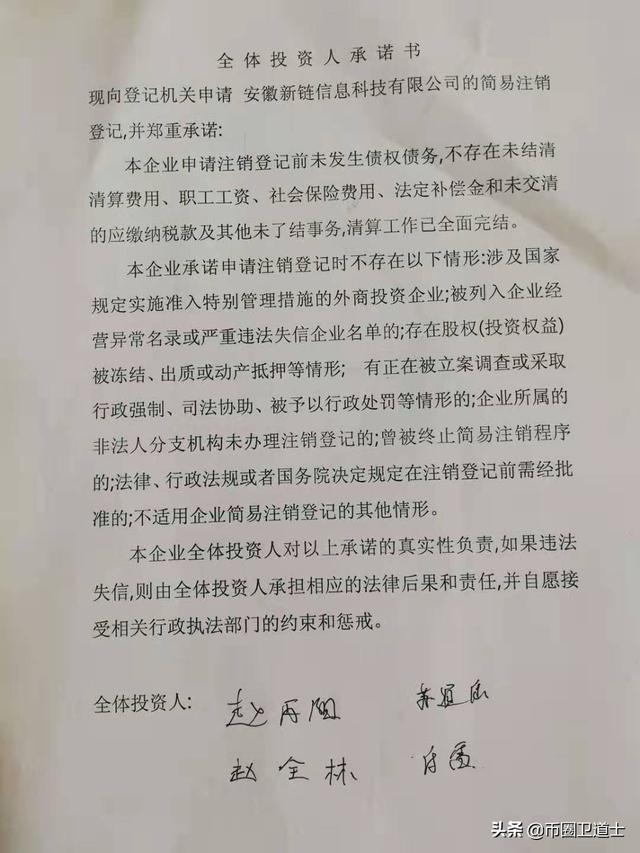 全体投资人承诺书
现向登记机关申请 安徽新链信息科技有限公司的简易注销
登记,并郑重承诺:
本企业申请注销登记前未发生债权债务,不存在未结清
清算费用、职工工资、社会保险费用、法定补偿金和未交清
的应缴纳税款及其他未了结事务,清算工作已全面完结。
本企业承诺申请注销登记时不存在以下情形:涉及国家
规定实施准入特别管理措施的外商投资企业;被列入企业经
营异常名录或严重违法失信企业名单的;存在股权(投资权益)
被冻结、出质或动产抵押等情形; 有正在被立案调查或采取
行政强制、司法协助、被予以行政处罚等情形的;企业所属的
非法人分支机构未办理注销登记的;曾被终止简易注销程序
的;法律、行政法规或者国务院决定规定在注销登记前需经批
准的;不适用企业简易注销登记的其他情形。
本企业全体投资人对以上承诺的真实性负责,如果违法
失信,则由全体投资人承担相应的法律后果和责任,并自愿接
受相关行政执法部门的约束和惩戒。
全体投资人:
赵全林
头条 @币圈卫道士